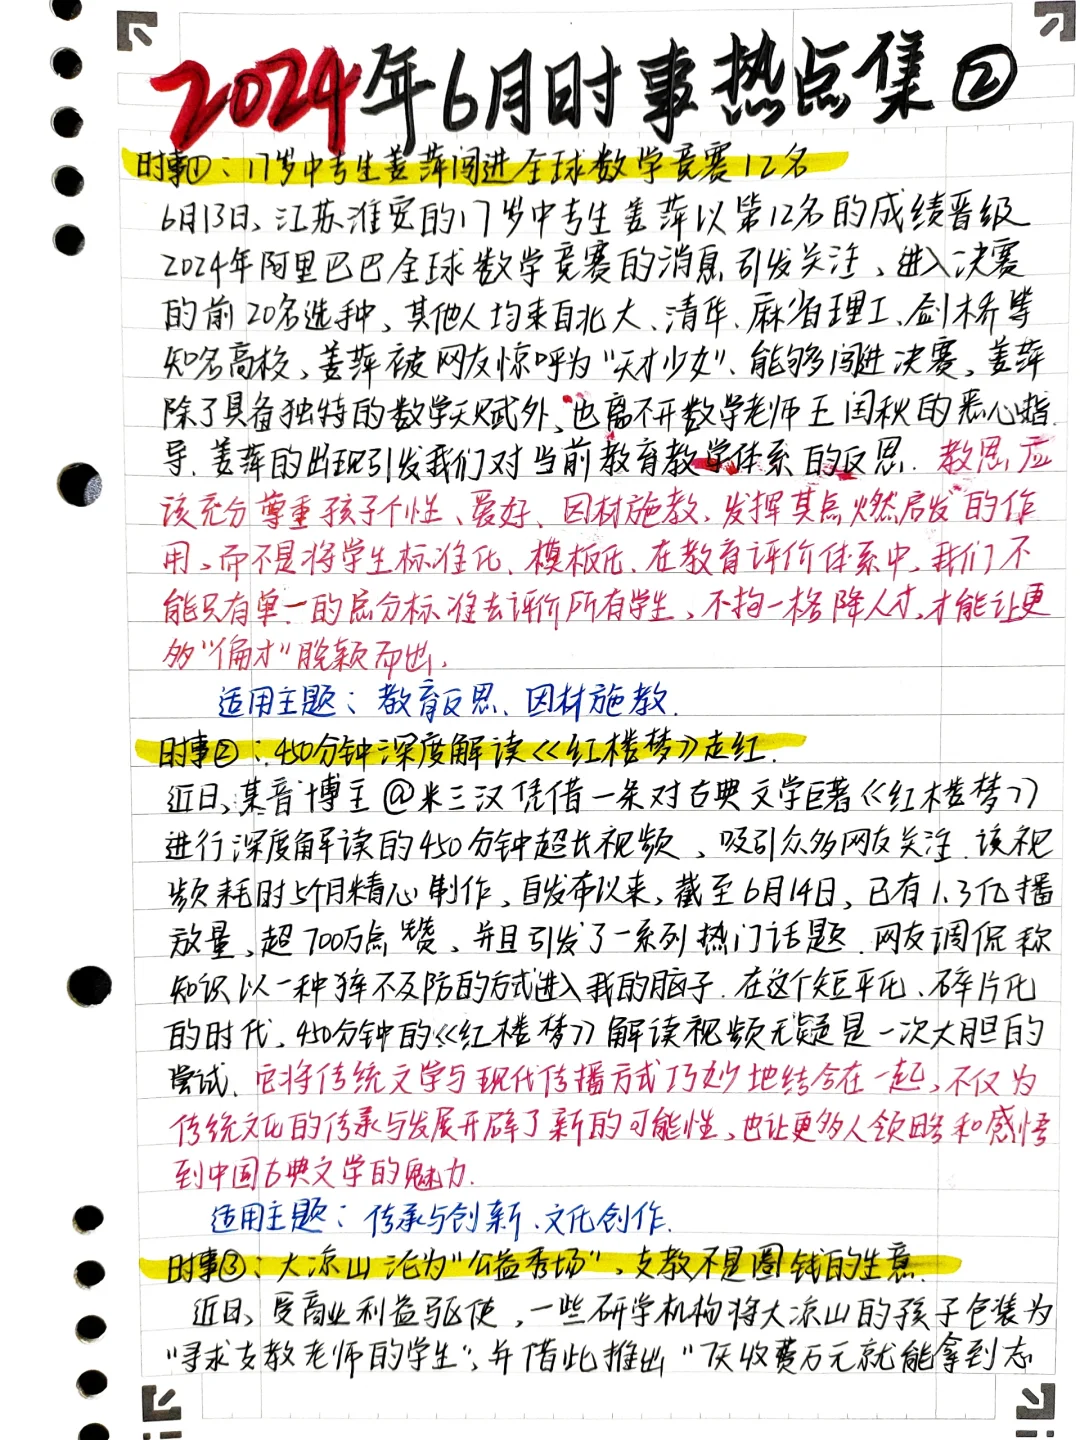 2024年6月时事热点集②
时事①：17岁中专生姜萍闯进全球数学竞赛12名
6月13日、江苏淮安的17岁中专生姜萍以第12名的成绩晋级
2024年阿里巴巴全球数学竞赛的消息引发关注、进入决赛
的前20名选种，其他人均来自北大、清华、麻省理工、剑桥等
知名高校、姜萍被网友惊呼为"天才少女"、能够闯进决赛，姜萍
除了具备独特的数学天赋外、也离不开数学老师王闰秋的悉心指
导.姜萍的出现引发我们对当前教育教学体系的反思.教思应
该充分尊重孩子个性、爱好、因材施教、发挥其点燃启发的作
用、而不是将学生标准化、模板化、在教育评价体系中，我们不
能只有单一的层分标准去评价所有学生、不拘一格降人才，才能让更
多"偏才"脱颖而出.
适用主题：教育反思、因材施教.
时事②：450分钟深度解读《红楼梦》走红.
近日，某音博主@米三汉凭借一条对古典文学巨著《红楼梦》
进行深度解读的450分钟超长视频、吸引众多网友关注.该视
频耗时5个月精心制作，自发布以来，截至6月14日，已有1.3亿播
放量，超700万点赞、并且引发了一系列热门话题.网友调侃称
知识以一种猝不及防的方式进入我的脑子.在这个短平化、碎片化
的时代，450分钟的《红楼梦》解读视频无疑是一次大胆的
尝试.它将传统文学与现代传播方式巧妙地结合在一起，不仅为
传统文化的传承与发展开辟了新的可能性、也让更多人领略和感悟
到中国古典文学的魅力.
适用主题：传承与创新、文化创作.
时事③：大凉山沦为"公益秀场"、支教不是圈钱的生意.
近日，受商业利益驱使，一些研学机构将大凉山的孩子包装为
"寻求支教老师的学生"、并借此推出"7天收费万元就能拿到志